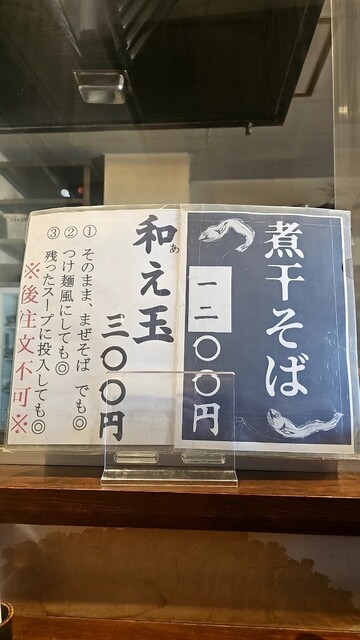 煮干そば
一二〇〇円
和え玉
あ
三〇〇円
①そのまま、まぜそば でも◎
②つけ麺風にしても◎
③残ったスープに投入しても◎
※後注文不可※